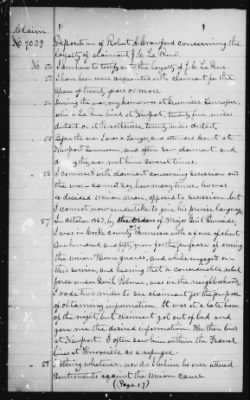 Claim
No 7037
Deposition of Robert A. Crawford concerning the
loyalty of claimant J. C. La Rue.
No. 50 I am here to testify as to the loyalty of J. C. La Rue
51 I have been acquainted with claimant for the
space of twenty years or more
During the war, my home was at Greenville Tennessee,
while La Rue lived at Newport, twenty five miles
distant
After the war I was a Surveyor, often was back at
Newport Tennessee, and often saw claimant and
him several times.
I conversed with claimant concerning secession and
the war - cannot say how many times. he was
a decided Union man, opposed to secession, but
I cannot now undertake to give his precise language
57 In October 1863, by the orders of Major Genl Burnside,
I was in Cocke county Tennessee with a force of about
One hundred and fifty men for the purpose of arming
the union Home guards, and while engaged in
this service, and hearing that a considerable rebel
force under Genl Palmer, was in the neighborhood,
I rode two miles to see claimant for the purpose
of obtaining information. It was at a late hour
of the night, but claimant got out of bed and
gave me the desired information. He then lived
at Newport. I often saw him within the Federal
lines at Knoxville as a refugee.
58 Nothing whatever, nor do I believe he ever uttered
sentiments against the Union cause
(Page 17)